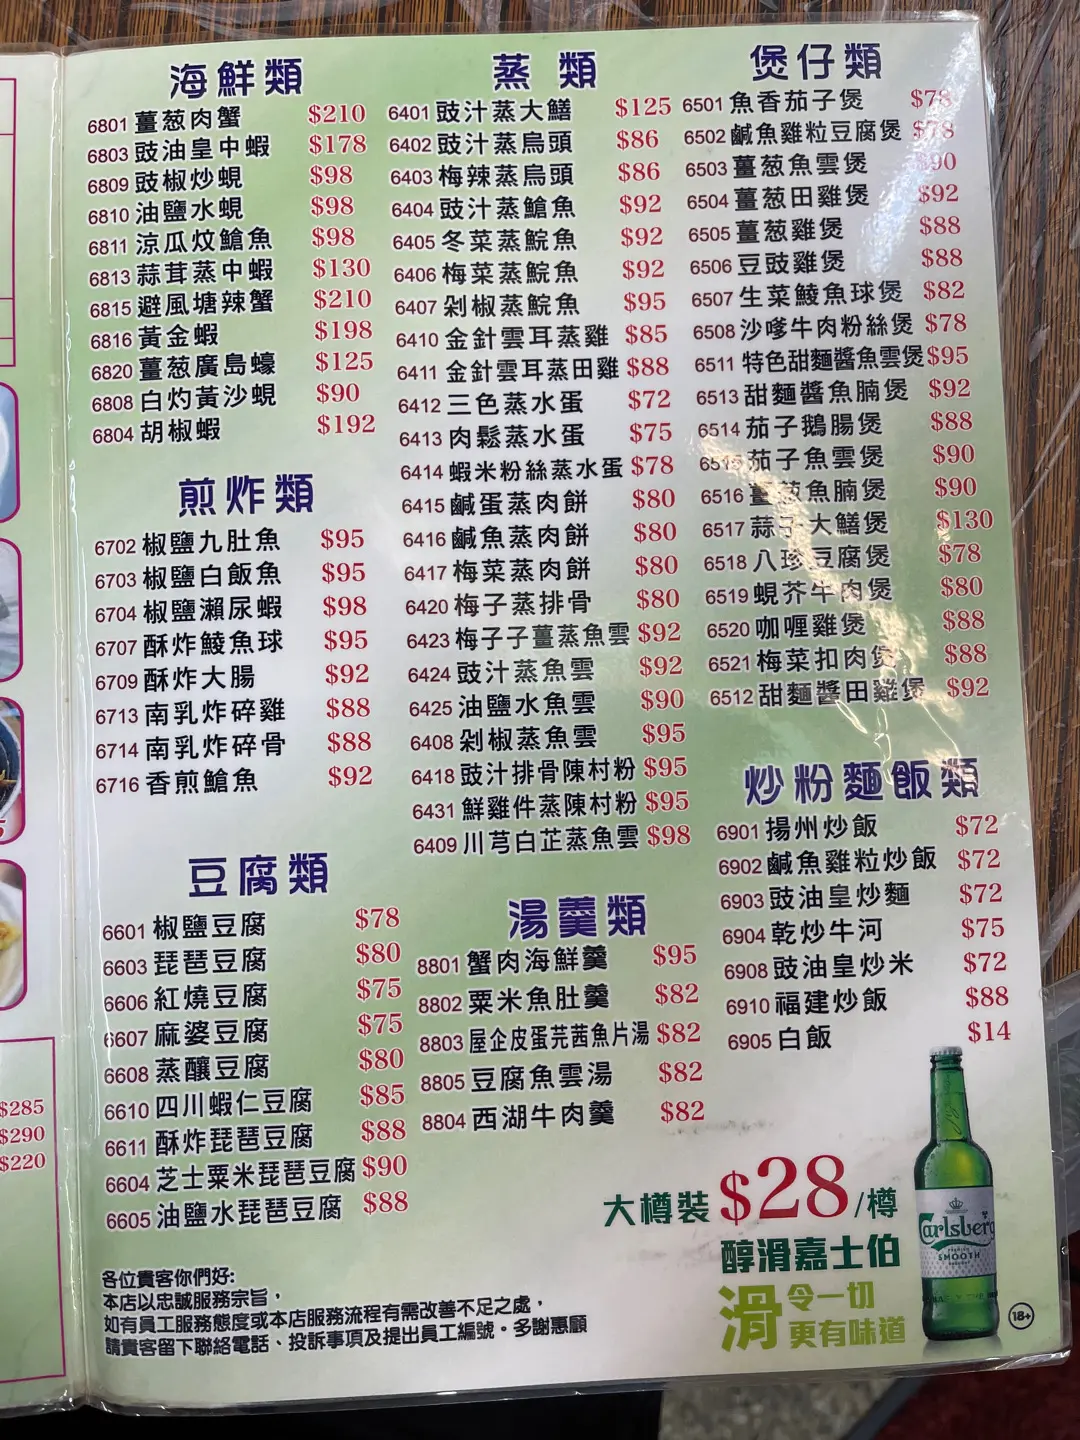 海鮮類
6801 薑葱肉蟹 $210
6803 豉油皇中蝦 $178
6809 豉椒炒蜆 $98
6810 油鹽水蜆 $98
6811 涼瓜炆鱠魚 $98
6813 蒜茸蒸中蝦 $130
6815 避風塘辣蟹 $210
6816 黃金蝦 $198
6820 薑葱廣島蠔 $125
6808 白灼黃沙蜆 $90
6804 胡椒蝦 $192
煎炸類
6702 椒鹽九肚魚 $95
6703 椒鹽白飯魚 $95
6704 椒鹽瀨尿蝦 $98
6707 酥炸鯪魚球 $95
6709 酥炸大腸 $92
6713 南乳炸碎雞 $88
6714 南乳炸碎骨 $88
6716 香煎鱠魚 $92
豆腐類
6601 椒鹽豆腐 $78
6603 琵琶豆腐 $80
6606 紅燒豆腐 $75
6607 麻婆豆腐 $75
6608 蒸釀豆腐 $80
6610 四川蝦仁豆腐 $85
6611 酥炸琵琶豆腐 $88
6604 芝士粟米琵琶豆腐 $90
6605 油鹽水琵琶豆腐 $88
各位貴客你們好:
本店以忠誠服務宗旨，
如有員工服務態度或本店服務流程有需改善不足之處，
請貴客留下聯絡電話、投訴事項及提出員工編號。多謝惠顧
蒸類
6401 豉汁蒸大鱔 $125
6402 豉汁蒸烏頭 $86
6403 梅辣蒸烏頭 $86
6404 豉汁蒸鱠魚 $92
6405 冬菜蒸鯇魚 $92
6406 梅菜蒸鯇魚 $92
6407 剁椒蒸鯇魚 $95
6410 金針雲耳蒸雞 $85
6411 金針雲耳蒸田雞 $88
6412 三色蒸水蛋 $72
6413 肉鬆蒸水蛋 $75
6414 蝦米粉絲蒸水蛋 $78
6415 鹹蛋蒸肉餅 $80
6416 鹹魚蒸肉餅 $80
6417 梅菜蒸肉餅 $80
6420 梅子蒸排骨 $80
6423 梅子子薑蒸魚雲 $92
6424 豉汁蒸魚雲 $92
6425 油鹽水魚雲 $90
6408 剁椒蒸魚雲 $95
6418 豉汁排骨陳村粉 $95
6431 鮮雞件蒸陳村粉 $95
6409 川芎白芷蒸魚雲 $98
湯羹類
8801 蟹肉海鮮羹 $95
8802 粟米魚肚羹 $82
8803 屋企皮蛋芫茜魚片湯 $82
8805 豆腐魚雲湯 $82
8804 西湖牛肉羹 $82
煲仔類
6501 魚香茄子煲 $78
6502 鹹魚雞粒豆腐煲 $78
6503 薑葱魚雲煲 $90
6504 薑葱田雞煲 $92
6505 薑葱雞煲 $88
6506 豆豉雞煲 $88
6507 生菜鯪魚球煲 $82
6508 沙嗲牛肉粉絲煲 $78
6511 特色甜麵醬魚雲煲 $95
6513 甜麵醬魚腩煲 $92
6514 茄子鵝腸煲 $88
6515 茄子魚雲煲 $90
6516 薑葱魚腩煲 $90
6517 蒜子大鱔煲 $130
6518 八珍豆腐煲 $78
6519 蜆芥牛肉煲 $80
6520 咖喱雞煲 $88
6521 梅菜扣肉煲 $88
6512 甜麵醬田雞煲 $92
炒粉麵飯類
6901 揚州炒飯 $72
6902 鹹魚雞粒炒飯 $72
6903 豉油皇炒麵 $72
6904 乾炒牛河 $75
6908 豉油皇炒米 $72
6910 福建炒飯 $88
6905 白飯 $14
大樽裝 $28/樽
醇滑嘉士伯
滑 令一切
更有味道
Carlsberg
SMOOTH
18+
$285
$290
$220